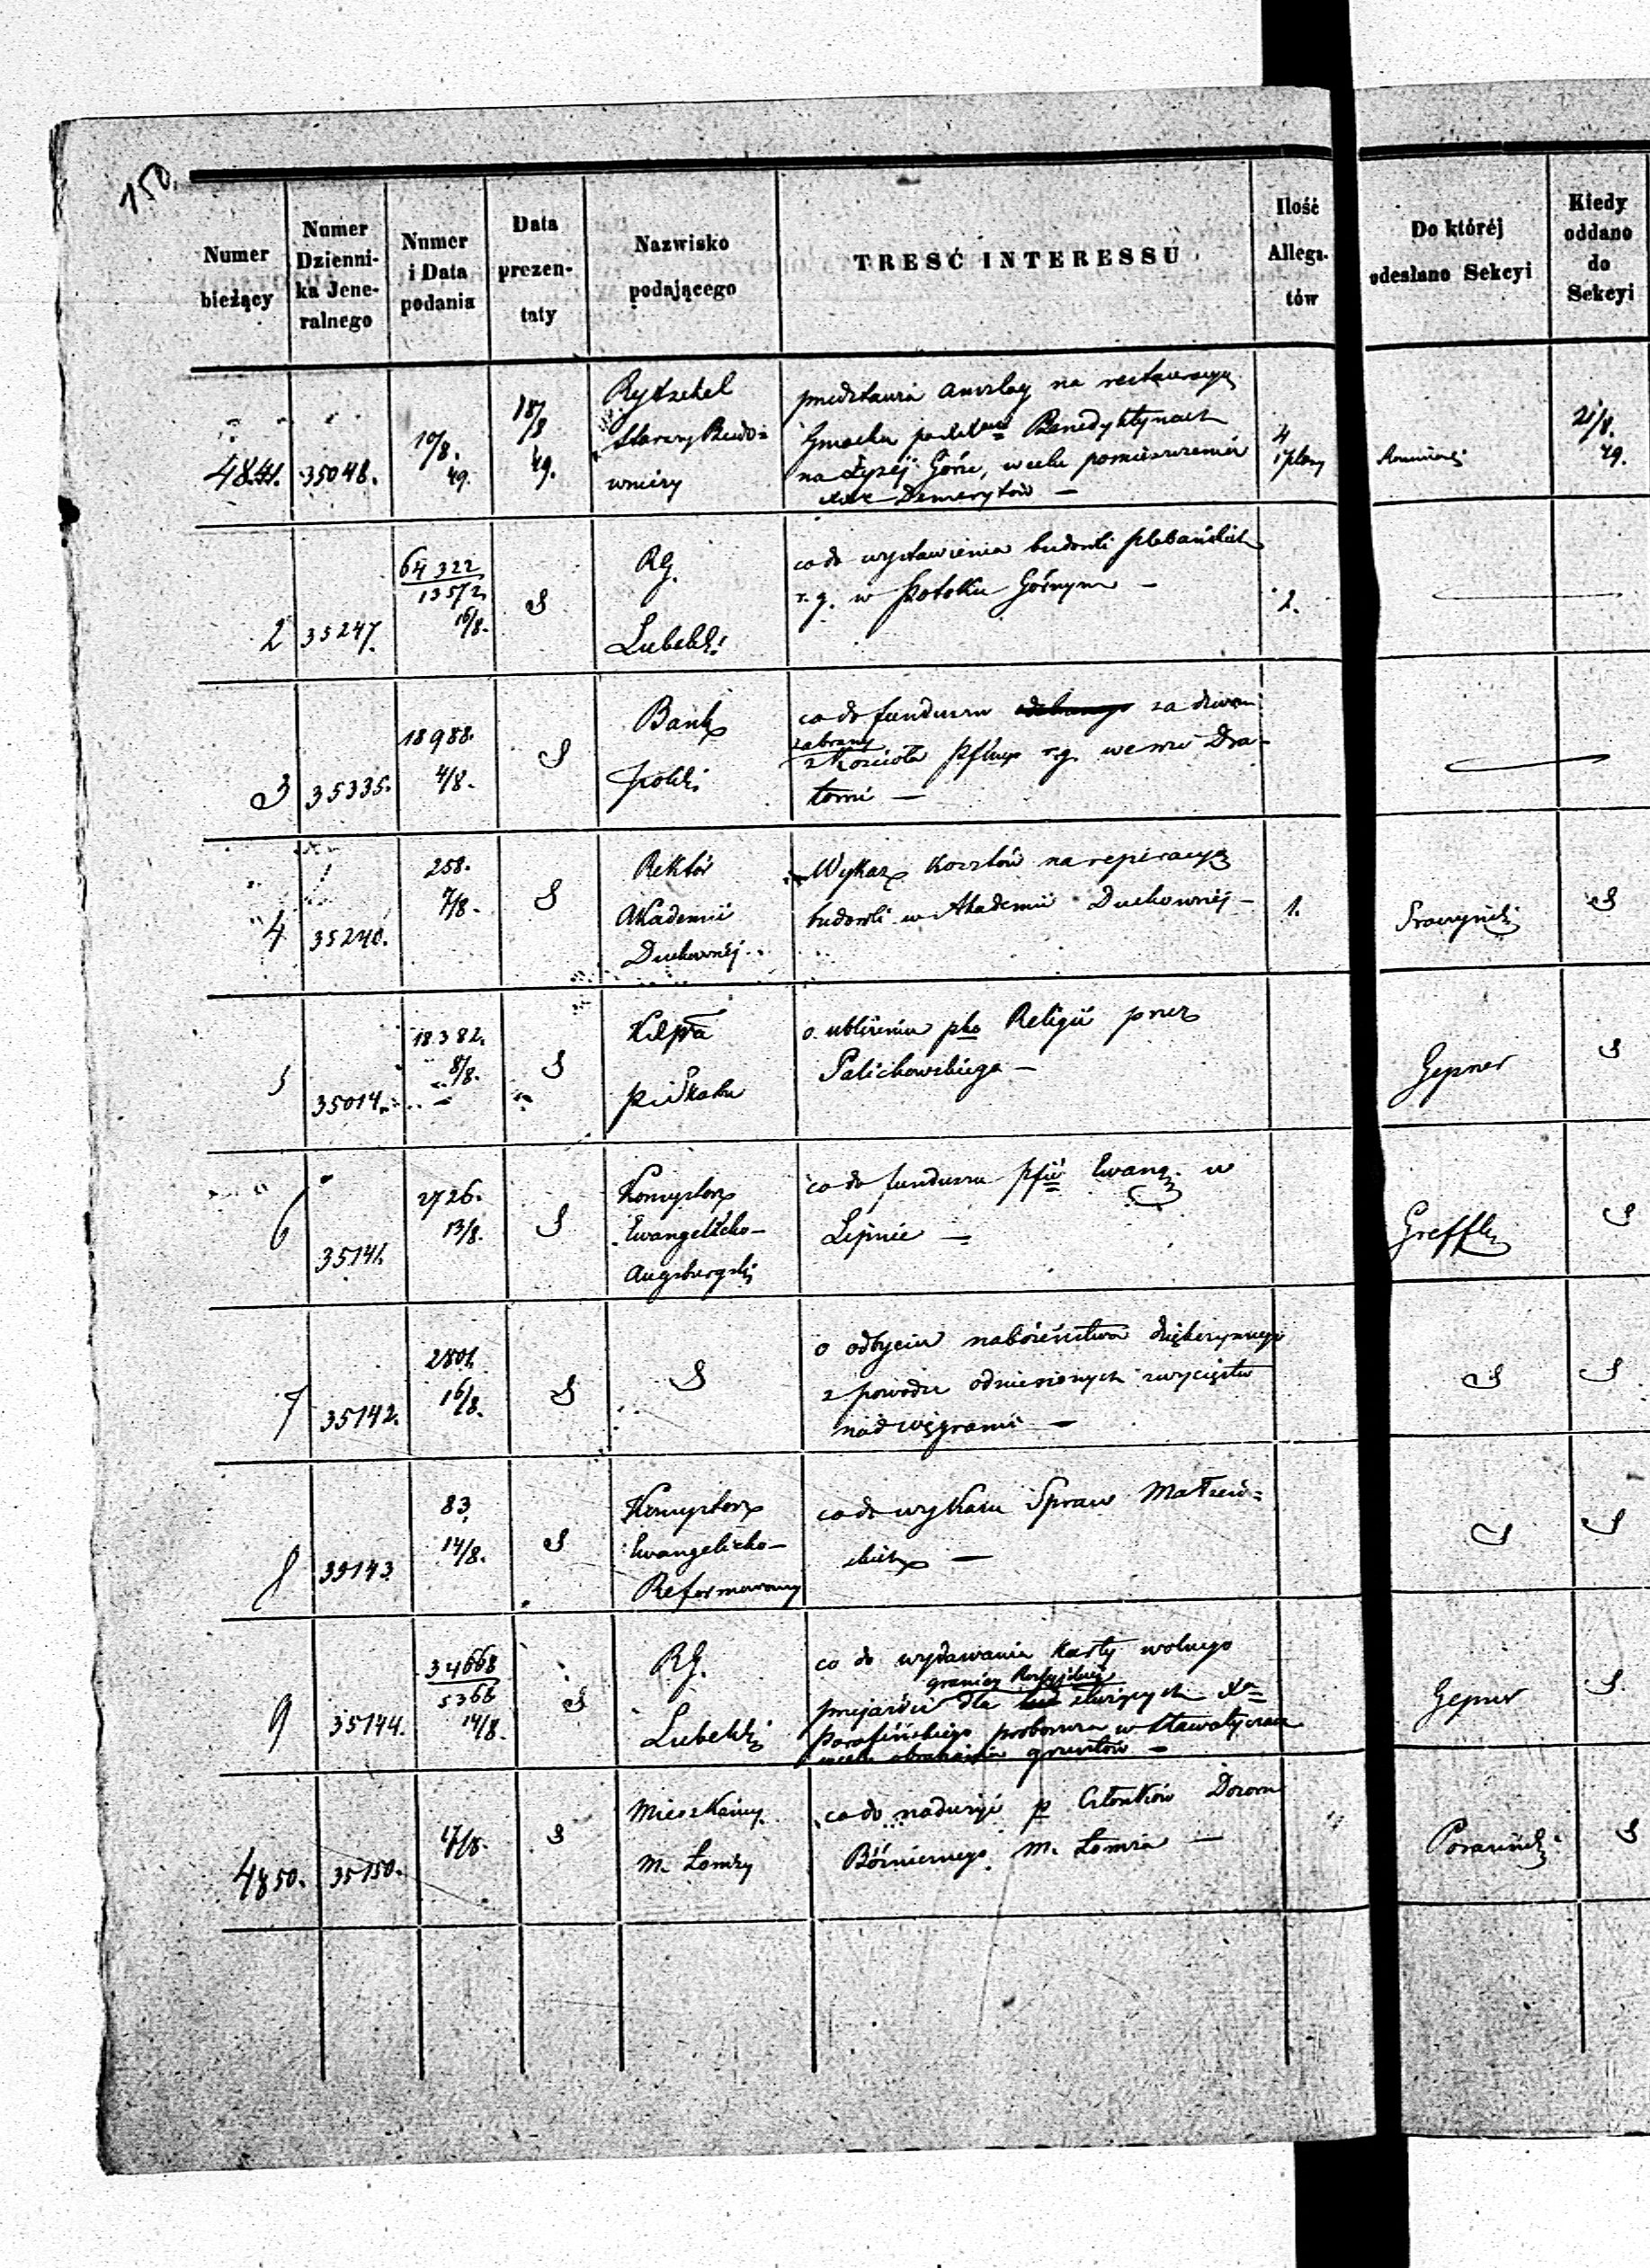 150.
Numer bieżący
Numer Dzienni-ka Jene-ralnego
Numer i Data podania
Data prezen-taty
Nazwisko podającego
TREŚĆ INTERESSU
Ilość Allega-tów
Do któréj odesłano Sekcyi
Kiedy oddano do Sekcyi
35048.
10/8. 49.
18/8 49.
Budo=
wniczy
przedstawia anszlag na restauracyą
Gmachu Benedyktynach
na Łyséj Górze, w celu pomieszczenia
Demerytów —
4
21/8. 49.
2
35247.
64322
13572
16/8.
S
RG.
Lubelski
co do wystawienia budowli plebańskich
r. g. w Potoku Górnym —
2.
3
35335.
18988.
4/8.
S
Bank
Polski
co do funduszu za dzwon
zabrany
z Kościoła r.g. we wsi
—
4
35240.
258.
7/8.
S
Rektor
Akademii
Duchownéj
Wykaz Kosztów na reperacyą
budowli w Akademii Duchownéj —
1.
S
5
35014.
18382.
8/8.
S
o ubliżeniu Religii przez
Palichowskiego —
Gepner
S
6
35141.
2726.
13/8.
S
Konsystorz
Ewangelicko—
Augsburgski
co do funduszu Ewang. w
Lipnie —
S
7
35142.
2801.
16/8.
S
S
o odbyciu nabożeństwa dziękczynnego
z powodu odniesionych zwycięstw
nad węgrami —
S
S
8
35143
83.
14/8.
S
Konsystorz
Ewangelicko—
Reformowany
co do wykazu Spraw Małżeń=
skich —
S
S
9
35144.
34668
5366
14/8.
S
RG.
Lubelski
co do wydawania Karty wolnego
granicy
przejazdu dla służących
Parafińskiego proboszcza w Sławatyczach
w celu obrabiania gruntów —
Gepner
S
4850.
35150.
17/8.
S
Mieszkańcy
M. Łomży
co do nadużyć p Członków Dozoru
Bóżniczego M. Łomża —
S